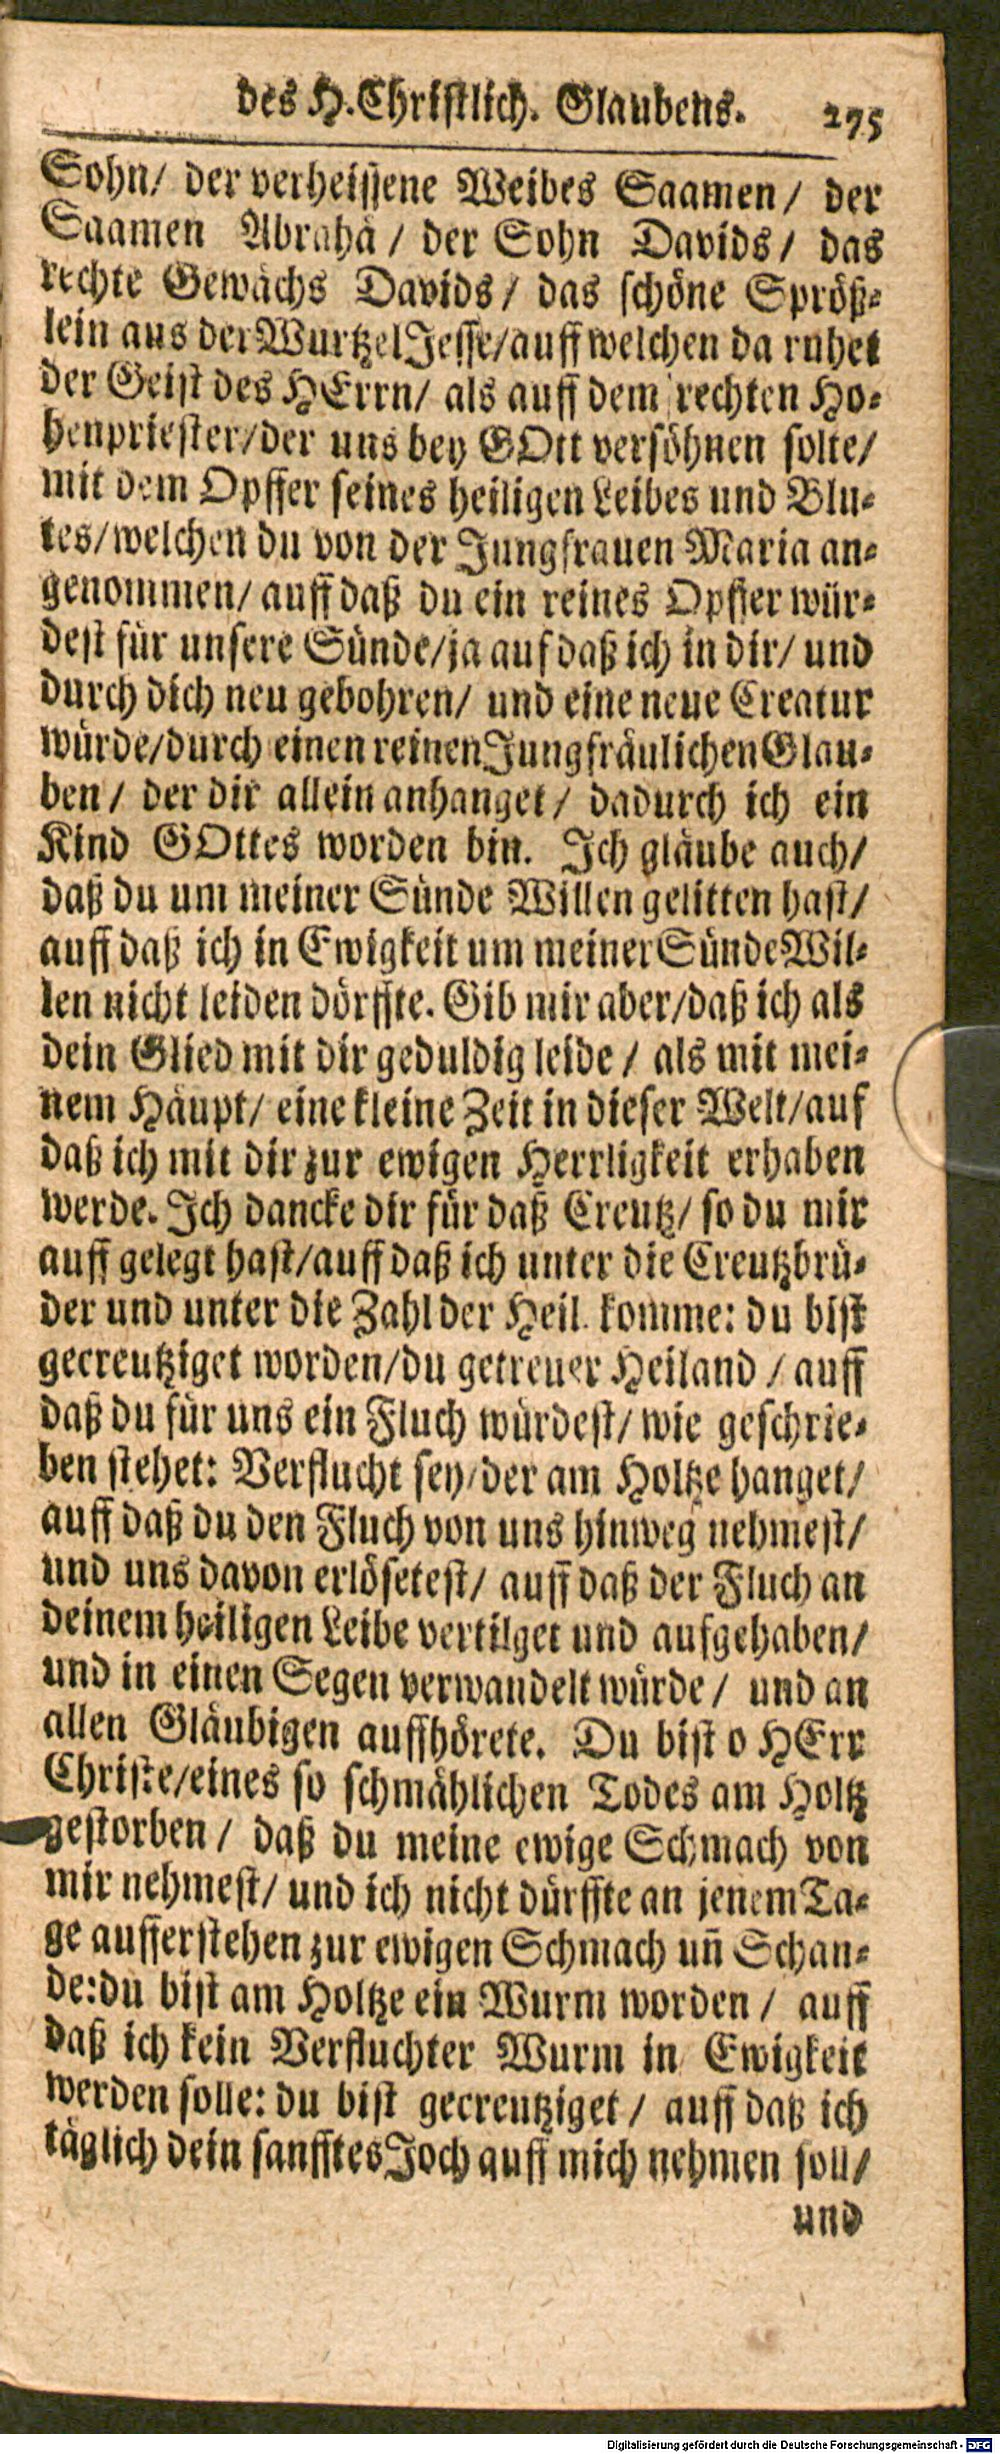 des H. Christlich. Glaubens. 275
Sohn/ der verheissene Weibes Saamen/ der
Saamen Abrahä/ der Sohn Davids/ das
rechte Gewächs Davids/ das schöne Spröß-
lein aus der Wurtzel Jesse/auff welchen da ruhet
der Geist des HErrn/ als auff dem rechten Ho-
henpriester/der uns bey GOtt versöhnen solte/
mit dem Opffer seines heiligen Leibes und Blu-
tes/welchen du von der Jungfrauen Maria an-
genommen/ auff daß du ein reines Opffer wür-
dest für unsere Sünde/ja auf daß ich in dir/ und
durch dich neu gebohren/ und eine neue Creatur
würde/durch einen reinen Jungfräulichen Glau-
ben/ der dir allein anhanget/ dadurch ich ein
Kind GOttes worden bin. Ich gläube auch/
daß du um meiner Sünde Willen gelitten hast/
auff daß ich in Ewigkeit um meiner Sünde Wil-
len nicht leiden dörffte. Gib mir aber/daß ich als
dein Glied mit dir geduldig leide/ als mit mei-
nem Häupt/ eine kleine Zeit in dieser Welt/auf
daß ich mit dir zur ewigen Herrligkeit erhaben
werde. Ich dancke dir für daß Creutz/ so du mir
auff gelegt hast/auff daß ich unter die Creutzbrü-
der und unter die Zahl der Heil. komme: du bist
gecreutziget worden/du getreuer Heiland/ auff
daß du für uns ein Fluch würdest/ wie geschrie-
ben stehet: Verflucht sey/der am Holtze hanget/
auff daß du den Fluch von uns hinweg nehmest/
und uns davon erlösetest/ auff daß der Fluch an
deinem heiligen Leibe vertilget und aufgehaben/
und in einen Segen verwandelt würde/ und an
allen Gläubigen auffhörete. Du bist o HErr
Christe/eines so schmählichen Todes am Holtz
gestorben/ daß du meine ewige Schmach von
mir nehmest/ und ich nicht dürffte an jenem Ta-
ge aufferstehen zur ewigen Schmach uñ Schan-
de:du bist am Holtze ein Wurm worden/ auff
daß ich kein Verfluchter Wurm in Ewigkeit
werden solle: du bist gecreutziget/ auff daß ich
täglich dein sanfftes Joch auff mich nehmen soll/
und
Digitalisierung gefördert durch die Deutsche Forschungsgemeinschaft - DFG